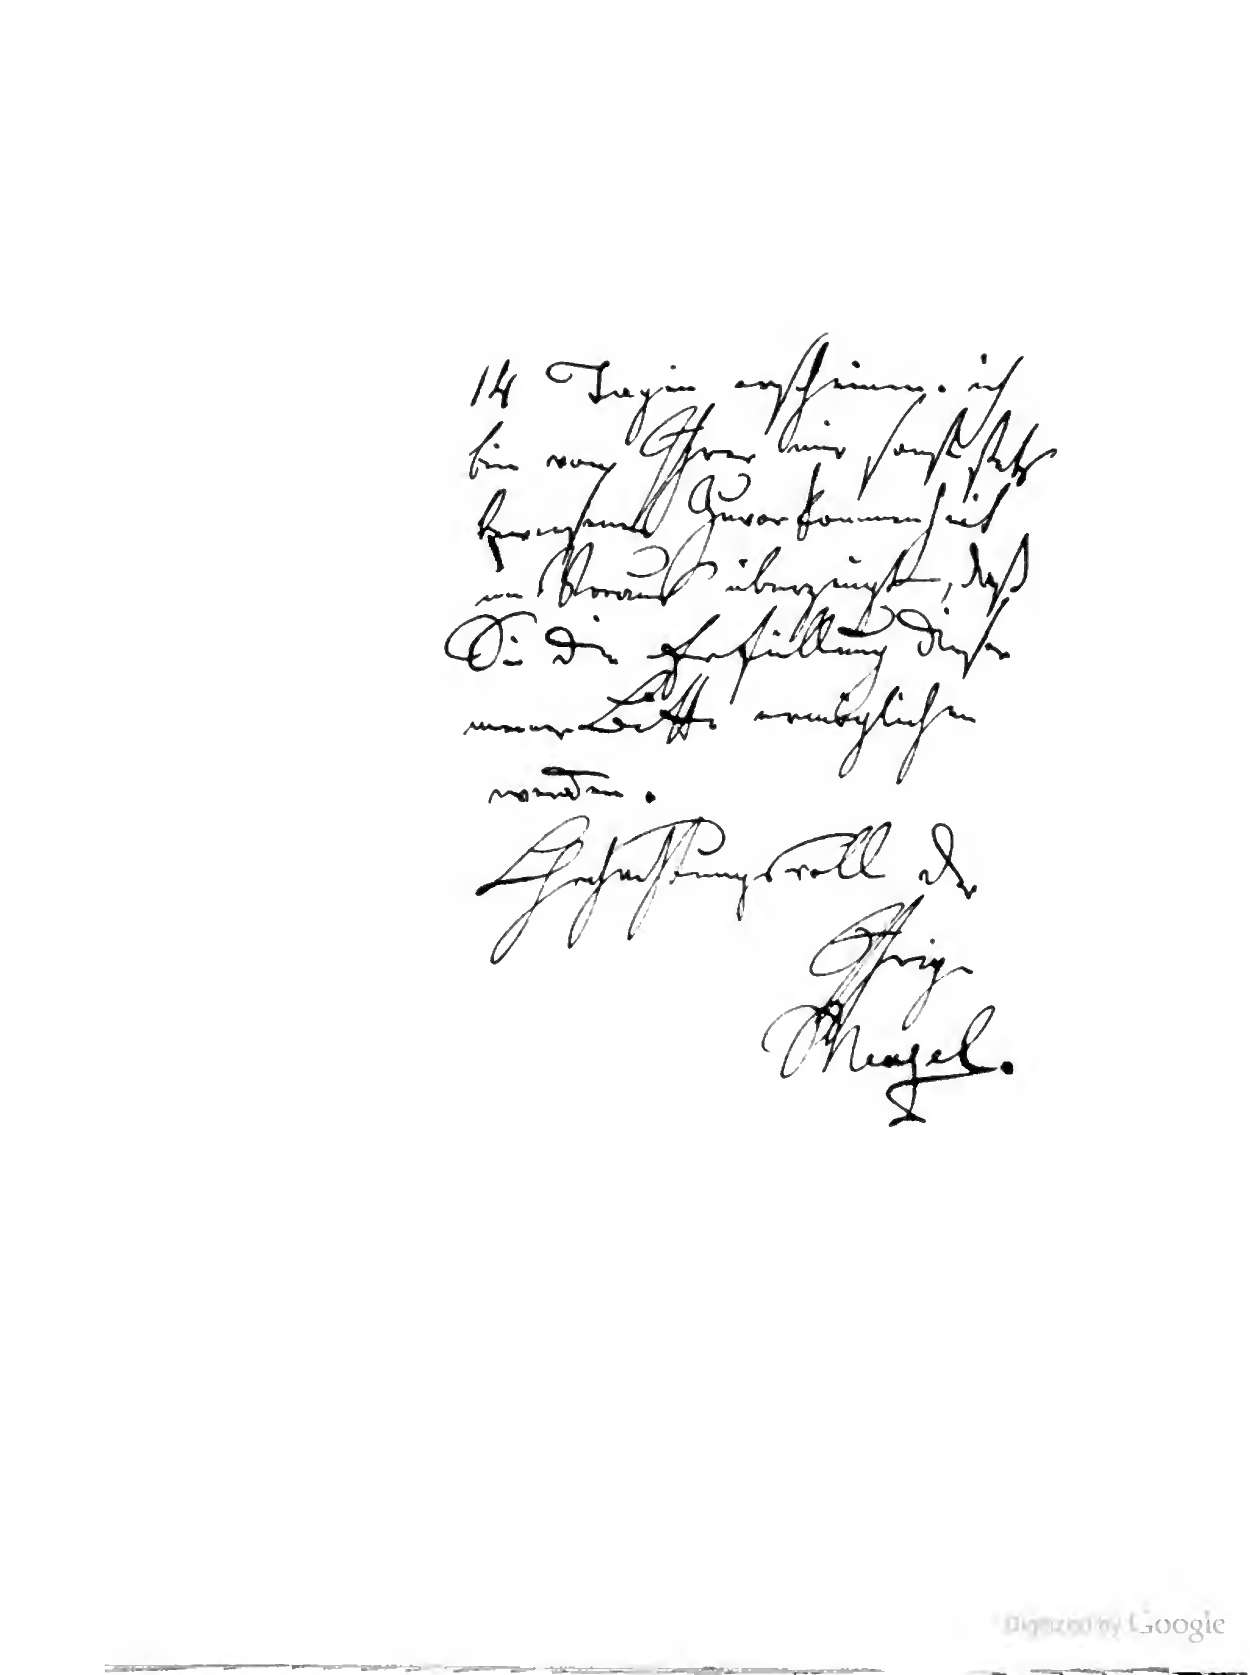 14 Tagen erscheinen. ich
bin von Ihrer mir sonst stets
bewiesenen Zuvorkommenheit
im Voraus überzeugt, daß
Sie die Erfüllung dieser
meiner Bitte ermöglichen
werden.
Hochachtungsvoll der
Ihrige
Menzel.
Digitized by Google